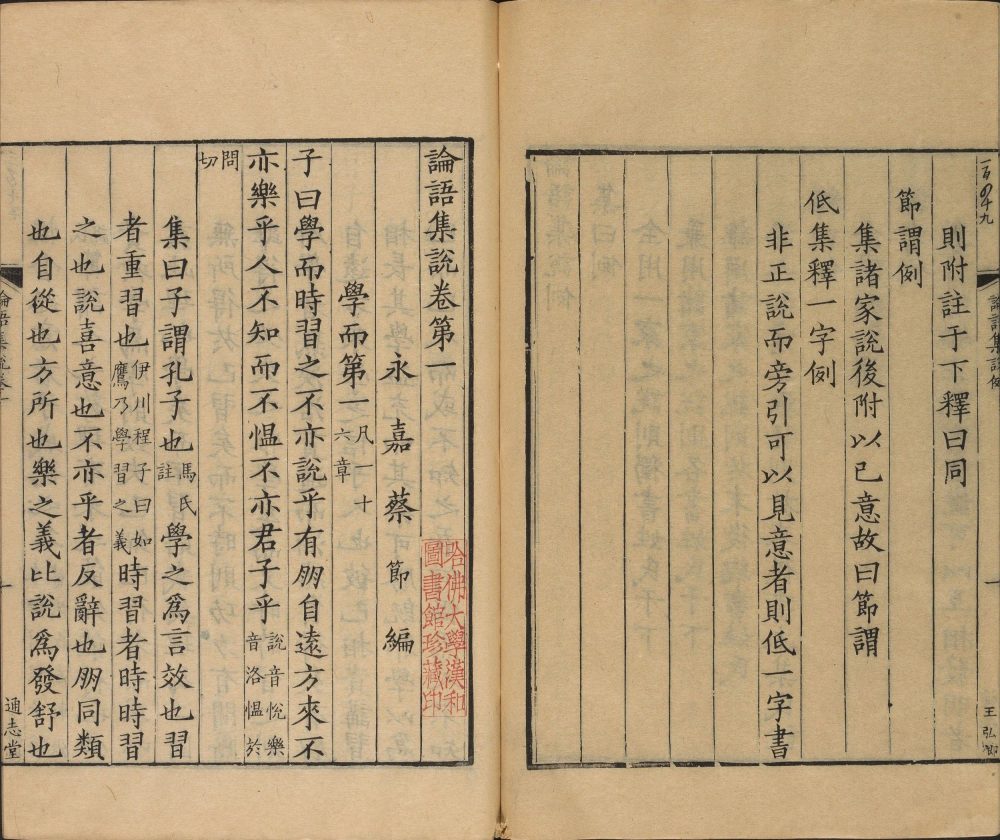 則附註于下釋曰同
節謂例
集諸家說後附以己意故曰節謂
低集釋一字例
非正說而旁引可以見意者則低一字書
論語集說例
一
王弘
論語集說卷第一
永嘉蔡節編
哈佛大學漢和
圖書館珍藏印
學而第一凡一十六章
子曰學而時習之不亦說乎有朋自遠方來不
亦樂乎人不知而不慍不亦君子乎說音悅樂音洛慍於
問切
集曰子謂孔子也馮氏註學之爲言效也習
者重習也伊川程子曰如鷹乃學習之義時習者時時習
之也說喜意也不亦乎者反辭也朋同類
也自從也方所也樂之義比說爲發舒也
論語集說卷一
一
通志堂